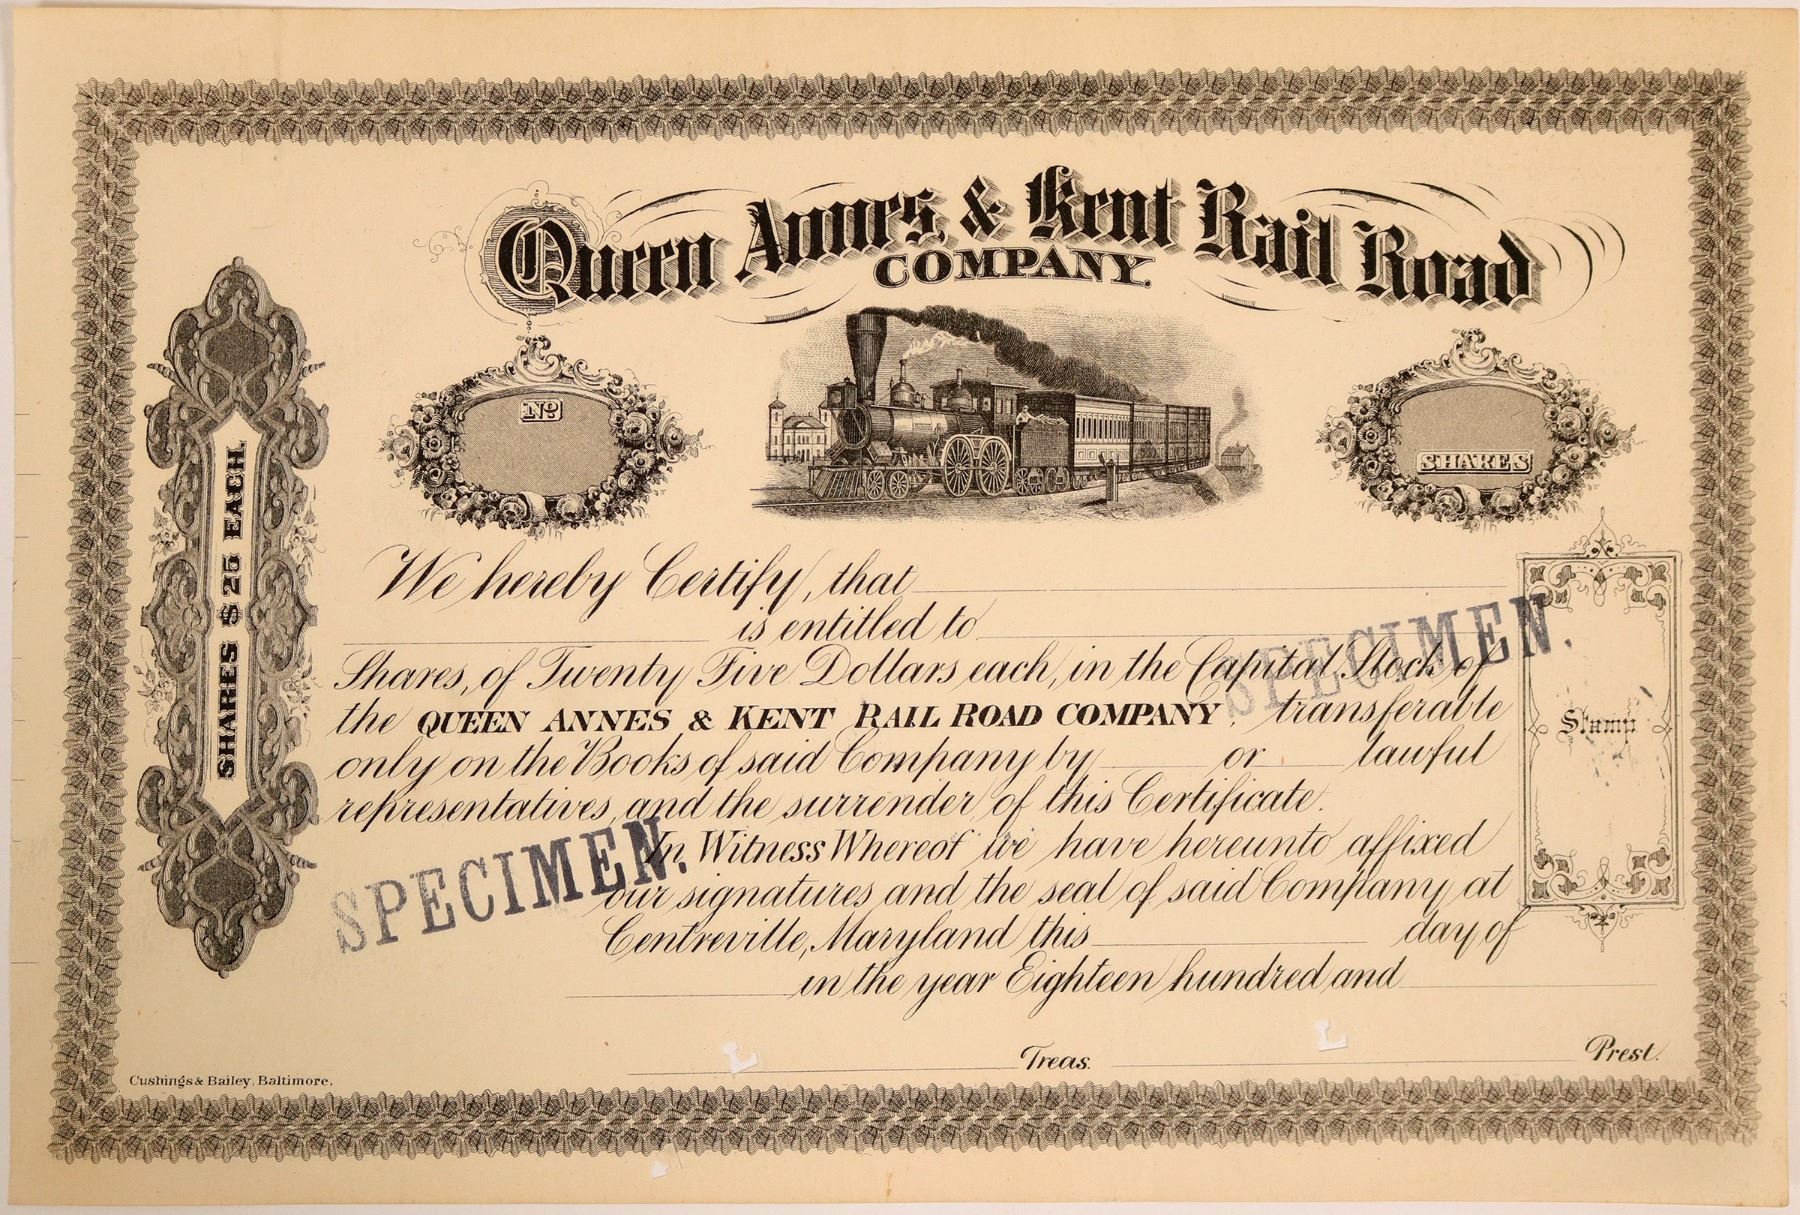 Queen Annes, & Kent Rail Road
COMPANY.
No
SHARES
SHARES $25 EACH.
We hereby Certify, that
is entitled to
Shares, of Twenty Five Dollars each, in the Capital Stock of
the QUEEN ANNES & KENT RAIL ROAD COMPANY, transferable
only on the Books of said Company by or lawful
representatives, and the surrender of this Certificate.
In Witness Whereof we have hereunto affixed
our signatures and the seal of said Company, at
Centreville, Maryland this day of
in the year Eighteen hundred and
Treas. Prest.
Stamp
SPECIMEN.
SPECIMEN.
Cushings & Bailey, Baltimore.